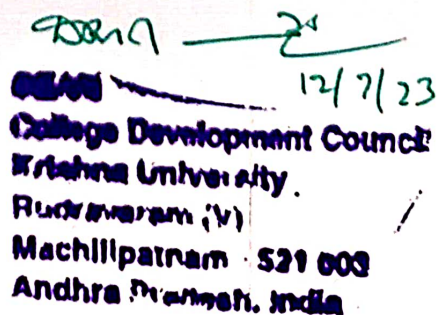 12/7/23
DEAN
College Development Council
Krishna University
Rudravaram (V)
Machilipatnam - 521 003
Andhra Pradesh, India